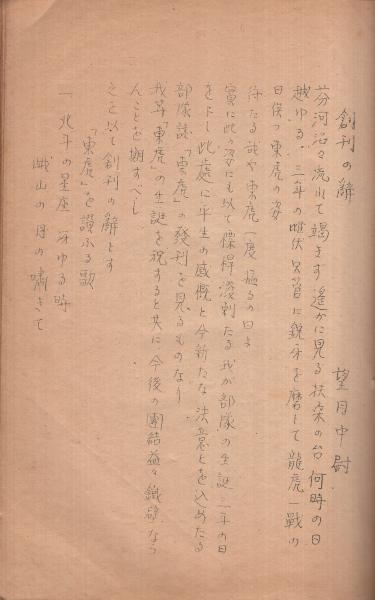 創刊の辭
望月中尉
芬河沿々流れて竭きす遙かに見る扶桑の台何時の日
越ゆる、三年の雌伏只管に鋭牙を磨して龍虎一戰の
日俟つ東虎の姿
待たる哉や東虎一度猛るの日よ
實に此の姿にも似て慓悍溌剌たる我が部隊の生誕一年の日
をトし此處に平生の感慨と今新たな決意とを込めたる
部隊誌「東虎」の發刊を見るものなり
我等「東虎」の生誕を祝すると共に今後の團結益々鐵壁なら
んことを期すべし
之を以て創刊の辭とす
「東虎」を讃ふる歌
「北斗の星座冴ゆる時
山の月の嘯きて